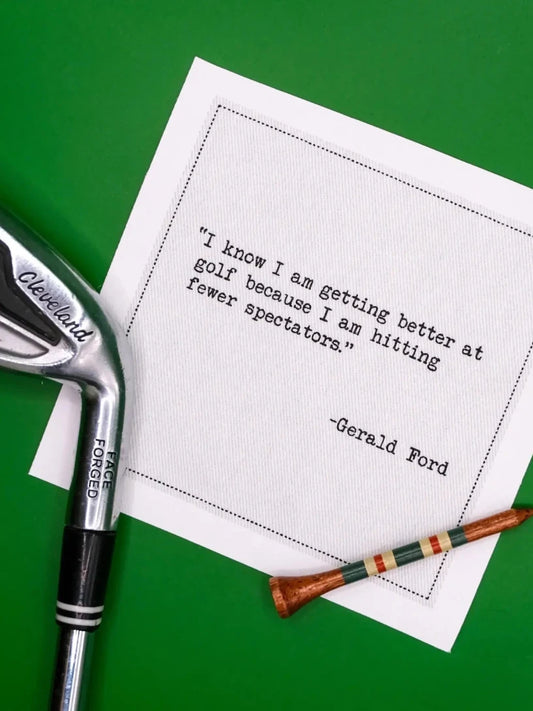 "I know I am getting better at
golf because I am hitting
fewer spectators."
-Gerald Ford
Cleveland
FACE
FORGED